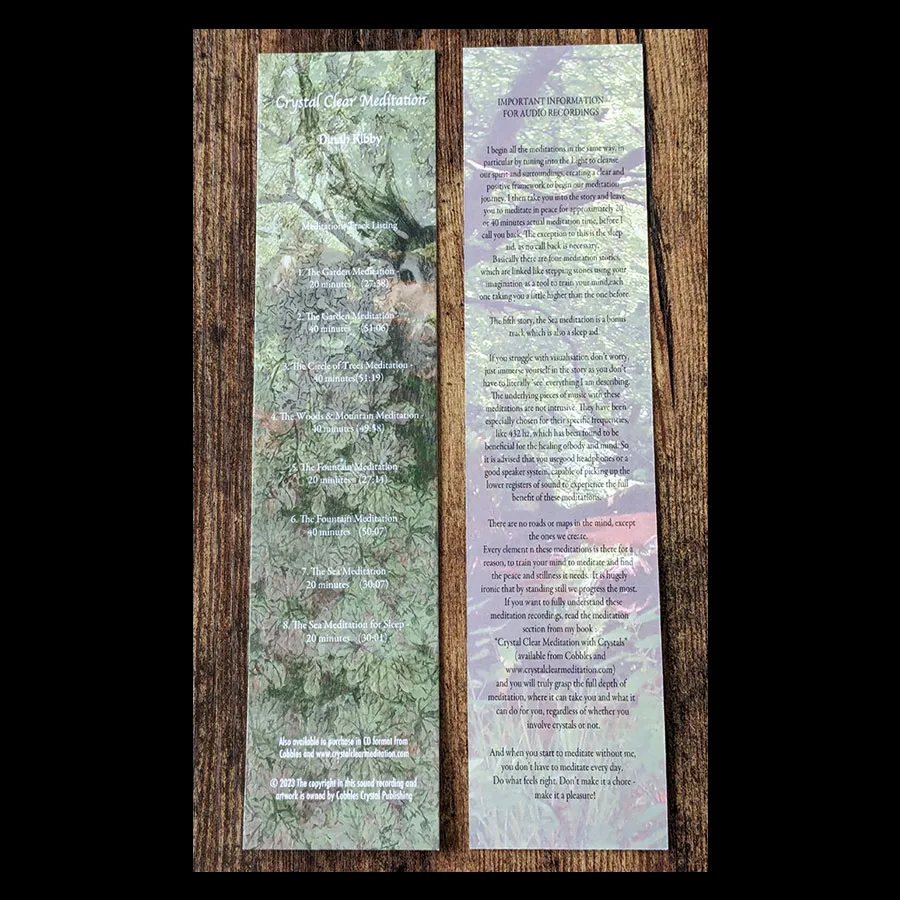 Crystal Clear Meditation
Dinah Kibby
Meditation Track Listing
1. The Garden Meditation -
20 minutes (27:38)
2. The Garden Meditation -
40 minutes (51:06)
3. The Circle of Trees Meditation -
40 minutes(51:19)
4. The Woods & Mountain Meditation -
40 minutes (49:58)
5. The Fountain Meditation -
20 minutes (27:14)
6. The Fountain Meditation -
40 minutes (50:07)
7. The Sea Meditation -
20 minutes (30:07)
8. The Sea Meditation for Sleep -
20 minutes (30:01)
Also available to purchase in CD format from
Cobbles and www.crystalclearmeditation.com
© 2023 The copyright in this sound recording and
artwork is owned by Cobbles Crystal Publishing
IMPORTANT INFORMATION
FOR AUDIO RECORDINGS
I begin all the meditations in the same way, in
particular by tuning into the Light to cleanse
our spirit and surroundings, creating a clear and
positive framework to begin our meditation
journey. I then take you into the story and leave
you to meditate in peace for approximately 20
or 40 minutes actual meditation time, before I
call you back. The exception to this is the sleep
aid, as no call back is necessary.
Basically there are four meditation stories,
which are linked like stepping stones using your
imagination as a tool to train your mind,each
one taking you a little higher than the one before.
The fifth story, the Sea meditation is a bonus
track which is also a sleep aid.
If you struggle with visualisation don't worry,
just immerse yourself in the story as you don't
have to literally 'see' everything I am describing.
The underlying pieces of music with these
meditations are not intrusive. They have been
especially chosen for their specific frequencies,
like 432 hz, which has been found to be
beneficial for the healing ofbody and mind. So
it is advised that you usegood headphones or a
good speaker system, capable of picking up the
lower registers of sound to experience the full
benefit of these meditations.
There are no roads or maps in the mind, except
the ones we create.
Every element n these meditations is there for a
reason, to train your mind to meditate and find
the peace and stillness it needs. It is hugely
ironic that by standing still we progress the most.
If you want to fully understand these
meditation recordings, read the meditation
section from my book :
"Crystal Clear Meditation with Crystals"
(available from Cobbles and
www.crystalclearmeditation.com)
and you will truly grasp the full depth of
meditation, where it can take you and what it
can do for you, regardless of whether you
involve crystals or not.
And when you start to meditate without me,
you don't have to meditate every day.
Do what feels right. Don't make it a chore -
make it a pleasure!